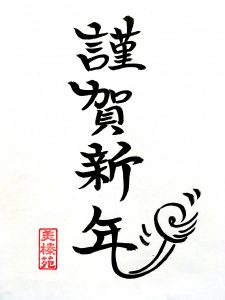 謹賀新年
美榛苑